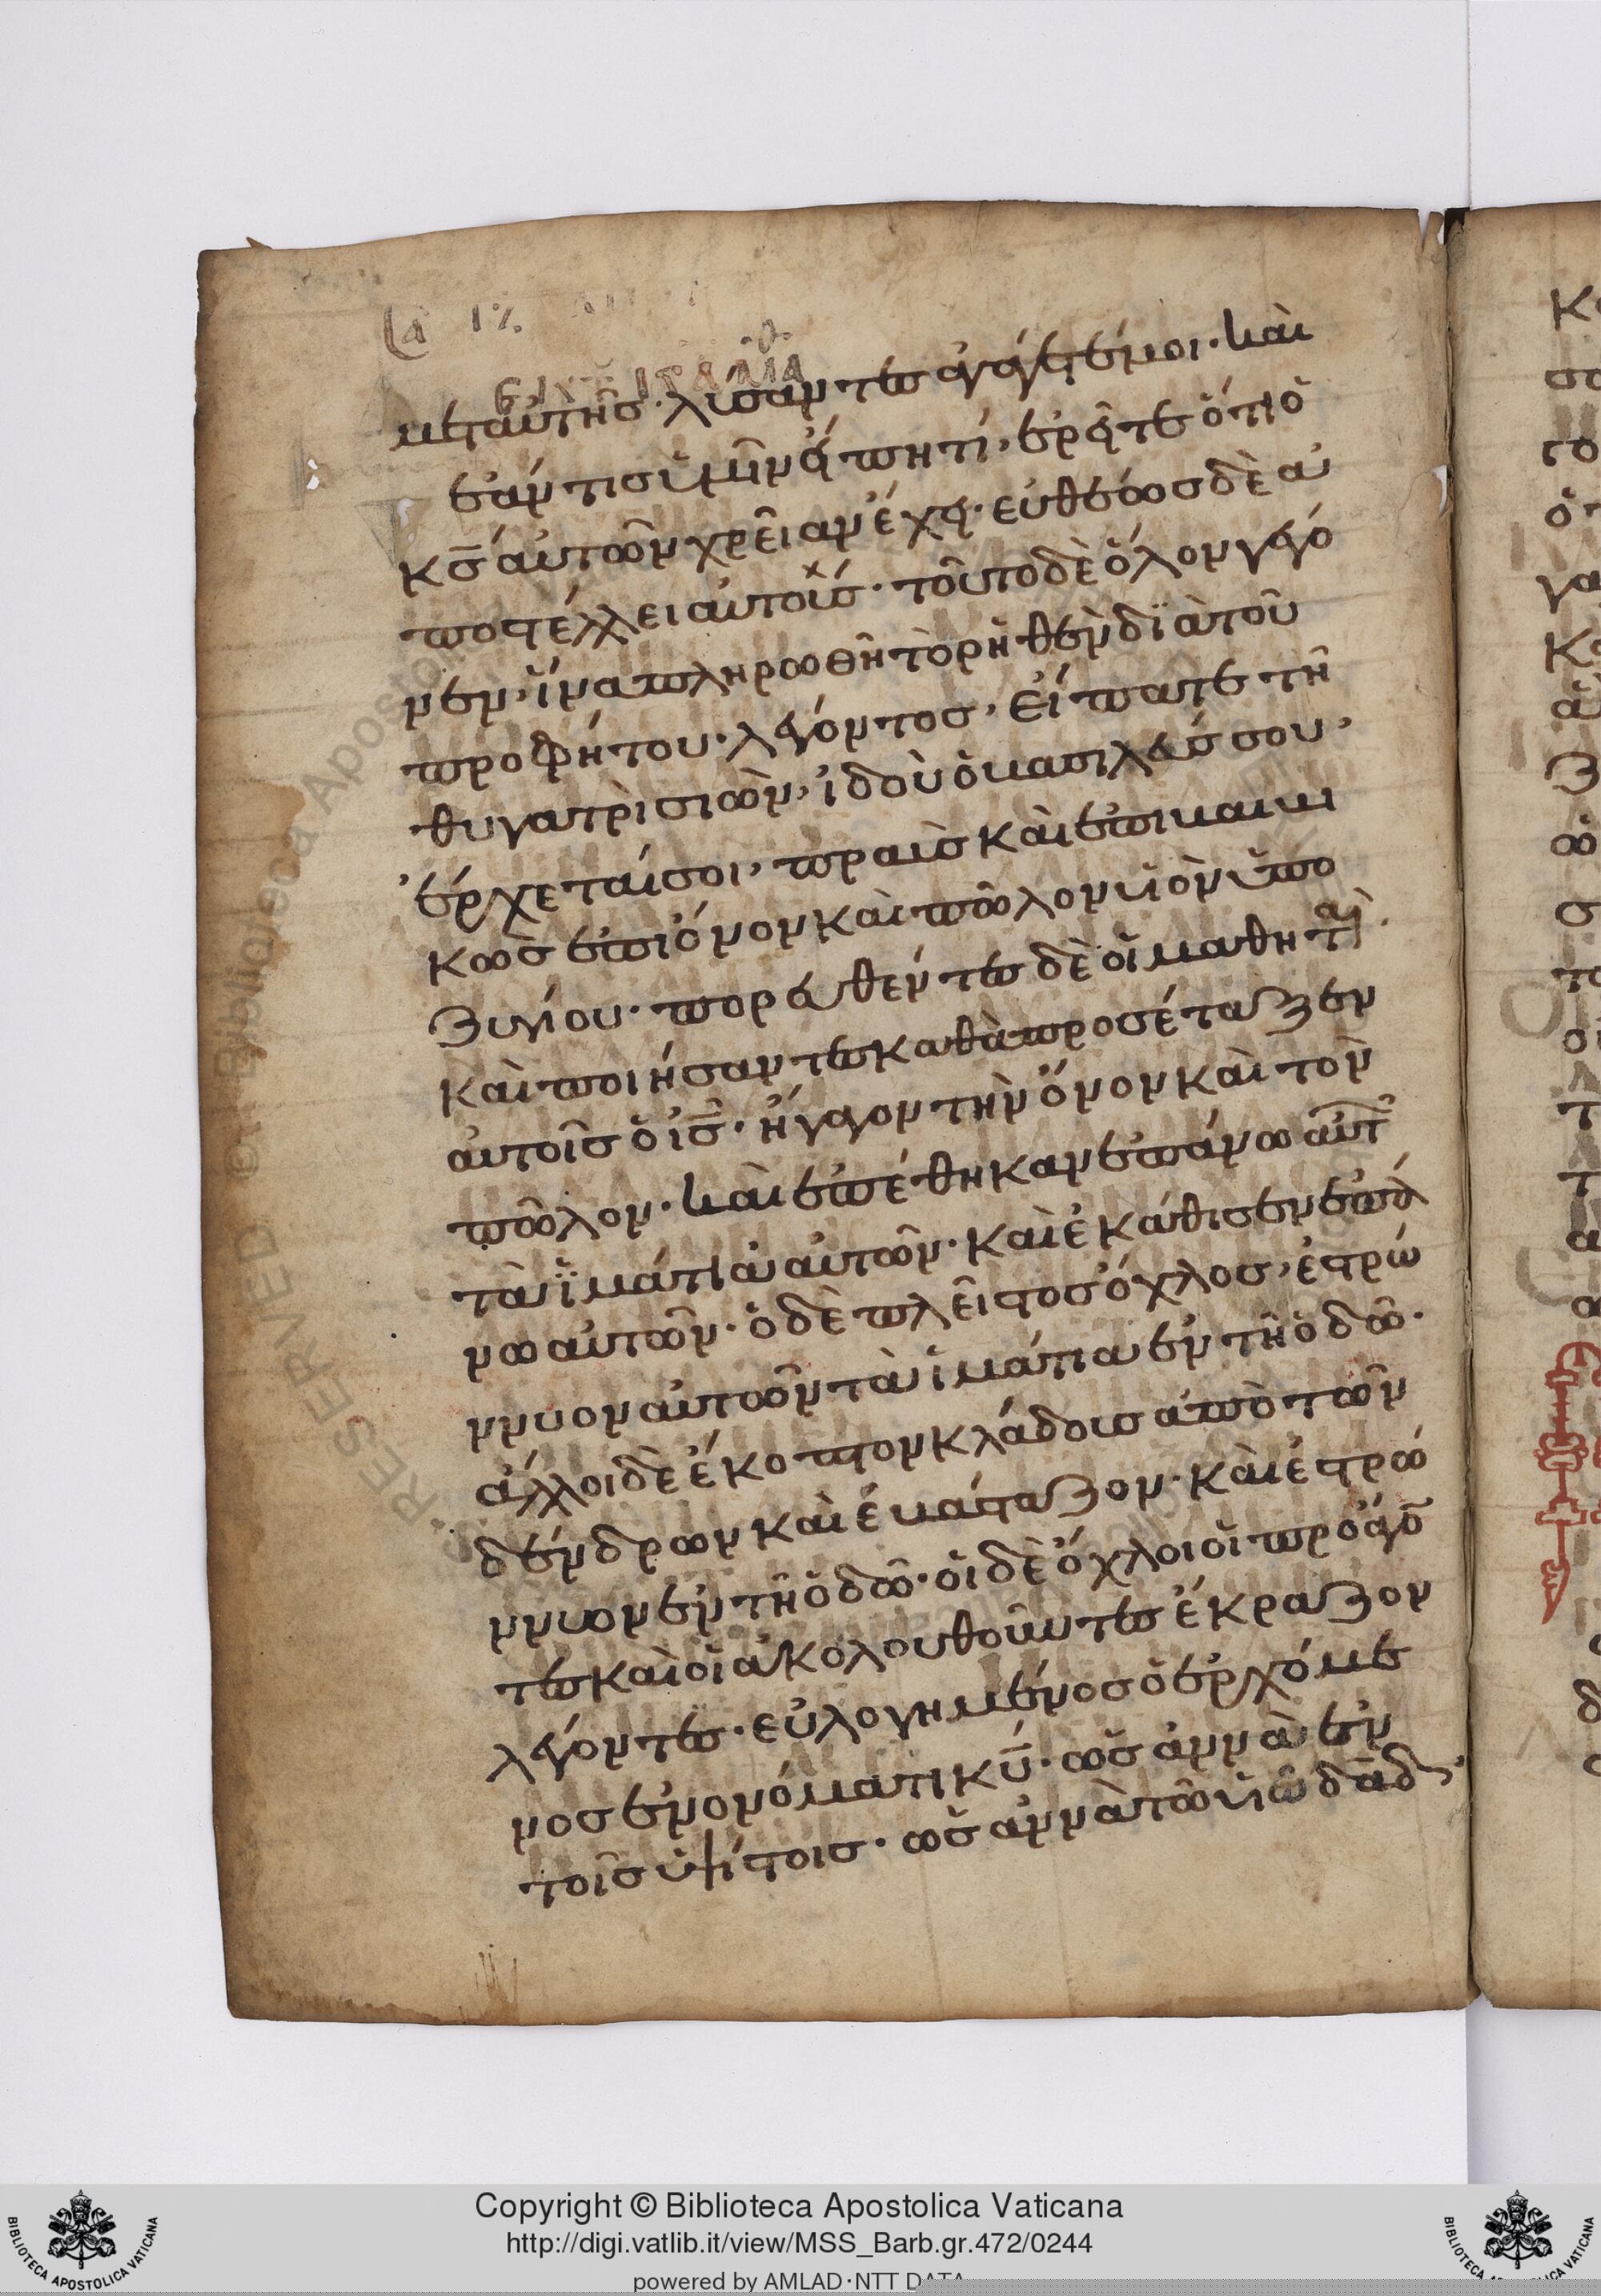 μεταὐτῆσ· λύσαντεσ ἀγάγετέμοι· καὶ
ἐάν τισ ὑμῖν εἴπητί, ἐρεῖτε ὅτι ὁ
κ̅σ̅ αὐτῶν χρεῖαν ἔχει· εὐθέωσ δὲ ἀ
ποστέλλει αὐτοῖσ· τοῦτο δὲ ὅλον γέγο
νεν, ἵνα πληρωθῆ τὸ ρηθὲν διὰ τοῦ
προφήτου· λέγοντοσ, εἴπατε τῆ
θυγατρὶ σιὼν, ἰδοὺ ὁ βασιλεύσ σου,
ἔρχεταί σοι, πραὺσ καὶ ἐπιβεβη
κὼσ ἐπὶ ὄνον καὶ πῶλον υἱὸν ὑπο
ζυγίου· πορευθέντεσ δὲ οἱ μαθηταὶ
καὶ ποιήσαντεσ καθὰ προσέταξεν
αὐτοῖσ ὁ ι̅σ̅· ἤγαγον τὴν ὄνον καὶ τὸν
πῶλον· καὶ ἐπέθηκαν ἐπάνω αὐτ
τὰ ἱμάτια αὐτῶν· καὶ ἐκάθισεν ἐπά
νω αὐτῶν· ὁ δὲ πλεῖστοσ ὄχλοσ, ἔστρώ
ννυον αὐτῶν τὰ ἱμάτια ἐν τῆ ὁδῶ·
ἄλλοι δὲ ἔκοπτον κλάδουσ ἀπὸ τῶν
δένδρων καὶ ἐ καὶ ἐστρώ
ννυον ἐν τῆ ὁδῶ· οἱ δὲ ὄχλοι οἱ προάγο̅
τεσ καὶ οἱ ἀκολουθοῦντεσ ἔκραζον
λέγοντεσ· εὐλογημένοσ ὁ ἐρχόμε
νοσ ἐν ὀνόματι κ̅υ̅· ὡσαννὰ ἐν
τοῖσ ὑψίστοισ· ὡσαννὰ τῶ υἱῶ δα̅δ
Copyright © Biblioteca Apostolica Vaticana
http://digi.vatlib.it/view/MSS_Barb.gr.472/0244
powered by AMLAD·NTT DATA
BIBLIOTECA APOSTOLICA VATICANA
BIBLIOTECA APOSTOLICA VATICANA